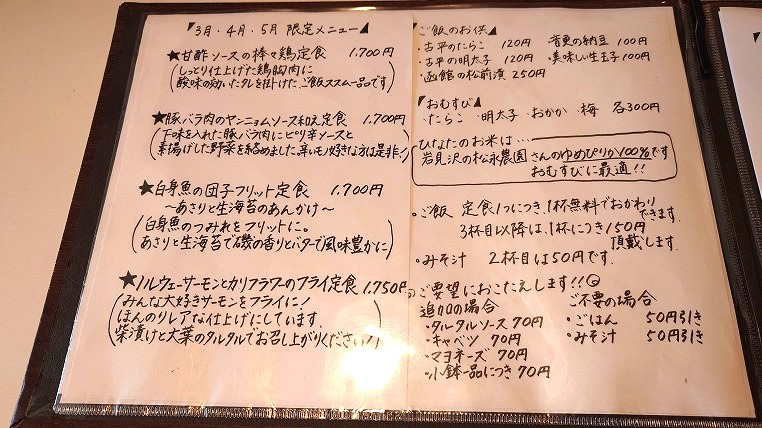 3月・4月・5月 限定メニュー
★甘酢ソースの棒々鶏定食 1.700円
しっとり仕上げた鶏胸肉に
酸味の効いたタレを掛けたご飯ススム一品です
★豚バラ肉のヤンニョムソース和え定食 1.700円
下味を入れた豚バラ肉にピリ辛ソースと
素揚げした野菜を絡めました、辛いモノ好きな方は是非!
★白身魚の団子フリット定食 1.700円
〜あさりと生海苔のあんかけ〜
白身魚のつみれをフリットに。
あさりと生海苔で磯の香りとバターで風味豊かに
★ノルウェーサーモンとカリフラワーのフライ定食 1.750円
みんな大好きサーモンをフライに!
ほんのりレアな仕上げにしています.
柴漬けと大葉のタルタルでお召し上がりください!
ご飯のお供
・古平のたらこ 120円
・古平の明太子 120円
・函館の松前漬 250円
音更の納豆 100円
・美味しい生玉子 100円
おむすび
・たらこ ・明太子 ・おかか ・梅 各300円
ひなたのお米は…
岩見沢の松永農園さんのゆめぴりか100%です
おむすびに最適!!
・ご飯 定食1つにつき、1杯無料でおかわりできます.
3杯目以降は、1杯につき150円
頂戴します.
・みそ汁 2杯目は50円です.
ご要望におこたえします!!
追加の場合
・タルタルソース 70円
・キャベツ 70円
・マヨネーズ 70円
・小鉢一品につき 70円
ご不要の場合
・ごはん 50円引き
・みそ汁 50円引き